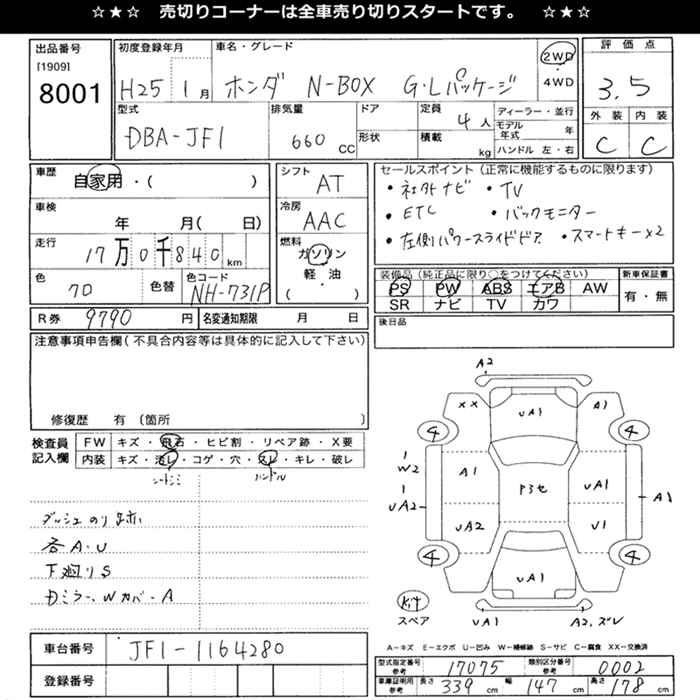 ☆★☆ 売切りコーナーは全車売り切りスタートです。 ☆★☆
出品番号
[1909]
8001
初度登録年月
H25 1月
車名・グレード
ホンダ N-BOX G・Lパッケージ
2WD
4WD
評価点
3.5
外装 内装
C C
型式
DBA-JF1
排気量
660 CC
ドア
形状
定員
4人
積載
kg
ディーラー・並行
モデル年式 年
ハンドル 左・右
車歴
自家用・( )
車検
年 月( 日)
走行
17万0千840km
色
70
色替
色コード
NH-731P
シフト
AT
冷房
AAC
燃料
ガソリン
軽・油
( ・ )
セールスポイント(正常に機能するものに限ります)
・社外ナビ ・TV
・ETC ・バックモニター
・左側パワースライドドア ・スマートキーx2
装備品(純正品に限り○をつけてください)
PS PW ABS エアB AW
SR ナビ TV カワ
新車保証書
有・無
R券 9790円
名変通知期限 月 日
後日品
注意事項申告欄(不具合内容等は具体的に記入して下さい)
修復歴 有〔箇所 〕
検査員記入欄
FW キズ・飛石・ヒビ割・リペア跡・X要
内装 キズ・汚レ・コゲ・穴・スレ・キレ・破レ
シートシミ ハンドル
ダッシュのり跡
各A・U
下廻りS
Dミラー、Wカバー・A
A2
XX UA1 A1
4 4
1
W2
A1 P3セ UA1
1
UA2
UA2 U1
A1
4 4
UA1
キット
スペア
UA1 A2、ズレ
A-キズ E-エクボ U-凹み W-補修跡 S-サビ C-腐食 XX-交換済
車台番号
JF1-1164280
登録番号
型式指定番号参考 17075
類別区分番号参考 0002
車庫証明用参考 長さ 339cm 幅 147cm 高さ 178cm